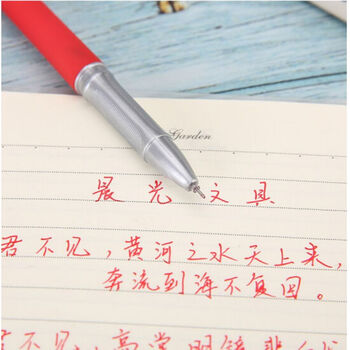 Garden
晨光文具
君不见,黄河之水天上来,
奔流到海不复回。
不见,高堂明镜悲